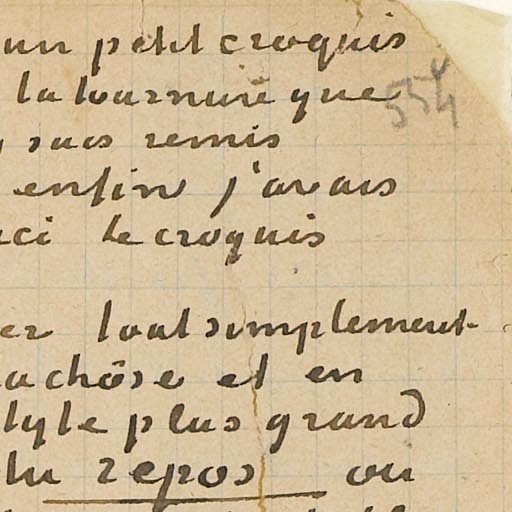 un petit croquis
la tournure que
554
y suis remis
enfin j'avais
ici le croquis
er tout simplement
la chôse et en
style plus grand
du repos ou